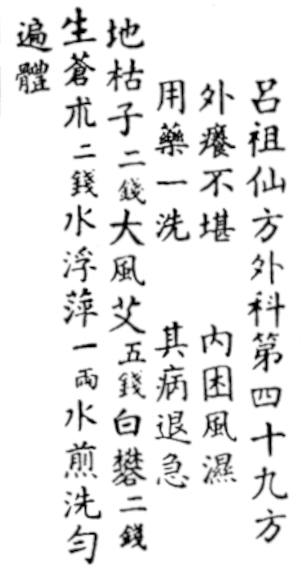 呂祖仙方外科第四十九方
外癢不堪　內困風濕
用藥一洗　其病退急
地枯子二錢大風艾五錢白礬二錢
生蒼朮二錢水浮萍一兩水煎洗勻
遍體